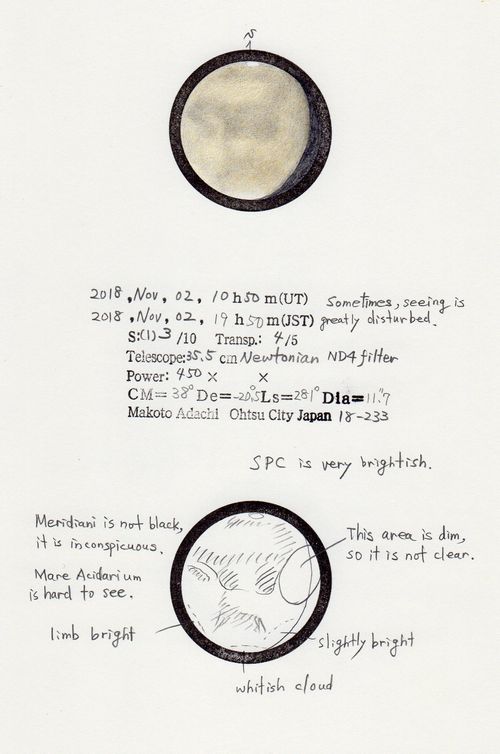 N
2018, Nov, 02, 10 h 50 m(UT) Sometimes, seeing is
2018, Nov, 02, 19 h 50 m(JST) greatly disturbed.
S:(1)3/10 Transp.: 4/5
Telescope:35.5 cm Newtonian ND4 filter
Power: 450 × ×
CM= 38° De=-20.5 Ls=281° Dia=11."7
Makoto Adachi Ohtsu City Japan 18-233
SPC is very brightish.
Meridiani is not black,
it is inconspicuous.
This area is dim,
so it is not clear.
Mare Acidarium
is hard to see.
limb bright
slightly bright
whitish cloud